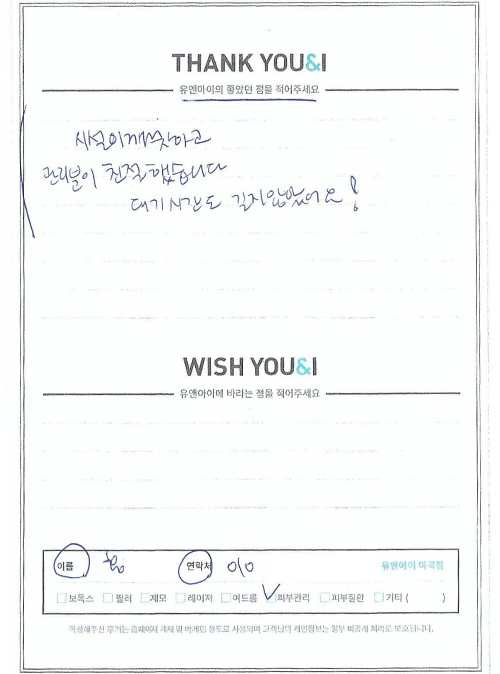 THANK YOU&I
유앤아이의 좋았던 점을 적어주세요
시설이깨끗하고
관리분이 친절했습니다
대기시간도 길지않았어요!
WISH YOU&I
유앤아이에 바라는 점을 적어주세요
이름 연락처 010 유앤아이 마곡점
보톡스 필러 제모 레이저 여드름 피부관리 피부질환 기타 ( )
작성해주신 후기는 홈페이지 게재 및 마케팅 용도로 사용되며 고객님의 개인정보는 일부 비공개 처리로 보호됩니다.